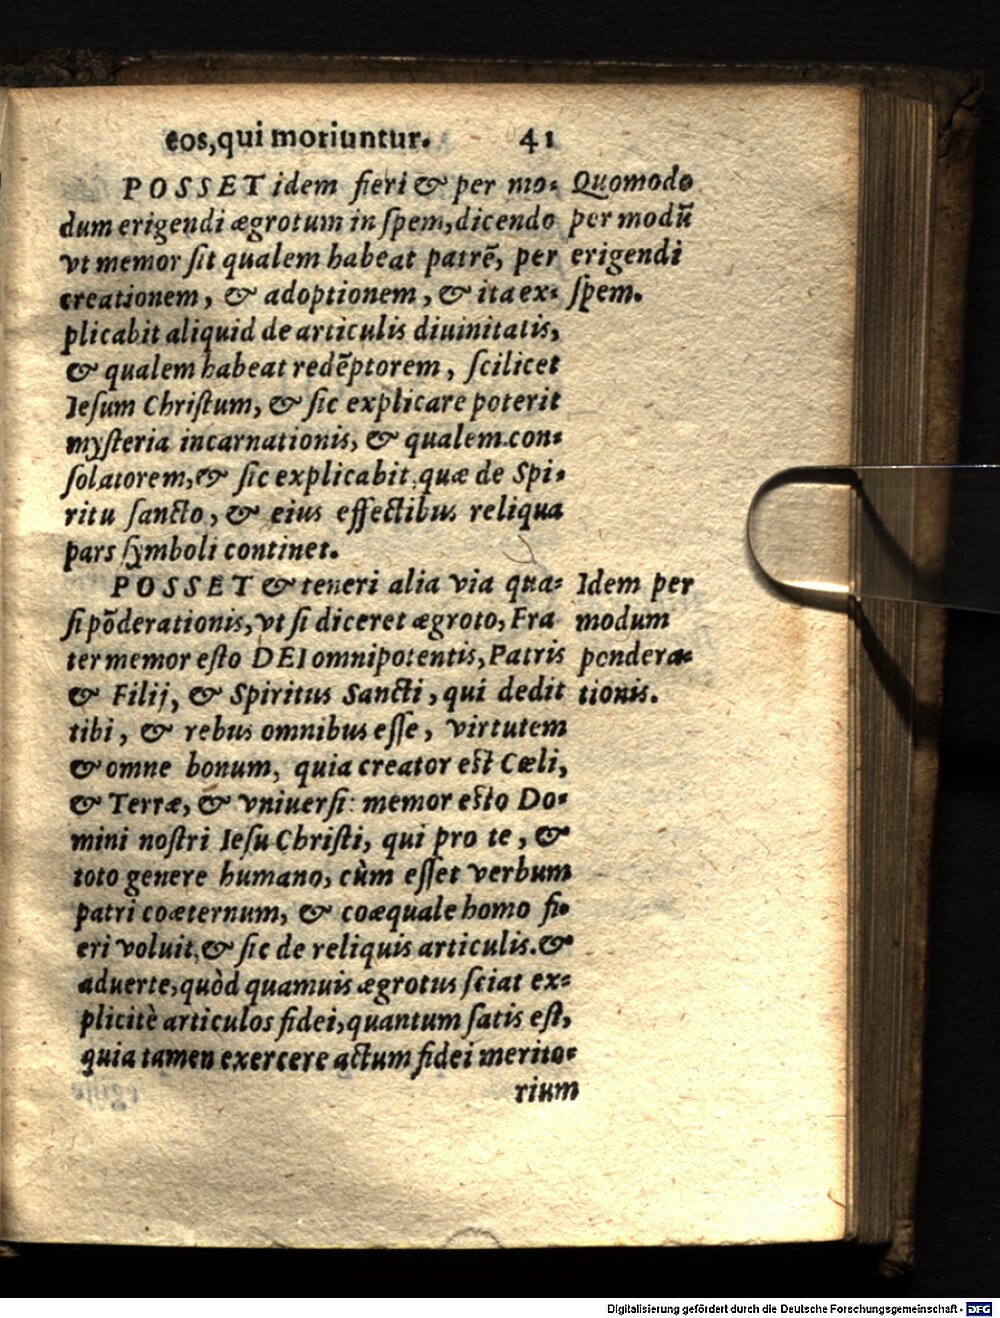 eos, qui moriuntur. 41
POSSET idem fieri & per mo-
dum erigendi ægrotum in ſpem, dicendo
vt memor ſit qualem habeat patrẽ, per
creationem, & adoptionem, & ita ex-
plicabit aliquid de articulis diuinitatis,
& qualem habeat redẽptorem, ſcilicet
Ieſum Chriſtum, & ſic explicare poterit
myſteria incarnationis, & qualem con-
ſolatorem, & ſic explicabit quæ de Spi-
ritu ſancto, & eius effectibus reliqua
pars ſymboli continet.
Quomodo
per modũ
erigendi
ſpem.
POSSET & teneri alia via qua-
ſi põderationis, vt ſi diceret ægroto, Fra
ter memor eſto DEI omnipotentis, Patris
& Filij, & Spiritus Sancti, qui dedit
tibi, & rebus omnibus eſſe, virtutem
& omne bonum, quia creator eſt Cœli,
& Terræ, & vniuerſi: memor eſto Do-
mini noſtri Ieſu Chriſti, qui pro te, &
toto genere humano, cùm eſſet verbum
patri coæternum, & coæquale homo fi-
eri voluit, & ſic de reliquis articulis. &
aduerte, quòd quamuis ægrotus ſciat ex-
plicitè articulos fidei, quantum ſatis eſt,
quia tamen exercere actum fidei merito-
rium
Idem per
modum
pondera-
tionis.
Digitalisierung gefördert durch die Deutsche Forschungsgemeinschaft - DFG